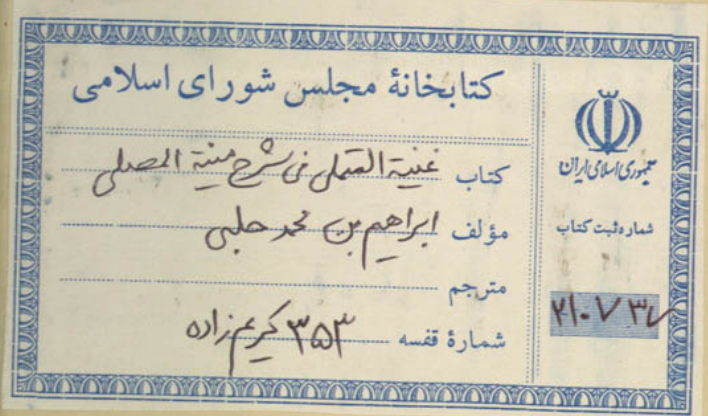 کتابخانهٔ مجلس شورای اسلامی
کتاب غنیة المتملی فی شرح منیة المصلی
مؤلف ابراهیم بن محمد حلبی
مترجم
شمارهٔ قفسه ۳۵۳ کریم‌زاده
جمهوری اسلامی ایران
شماره ثبت کتاب
۲۱۰۷۳۷